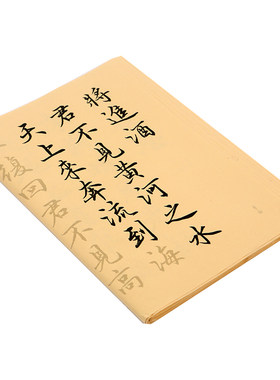 將進酒
君不見黃河之水
天上來奔流到海
復回君不見高